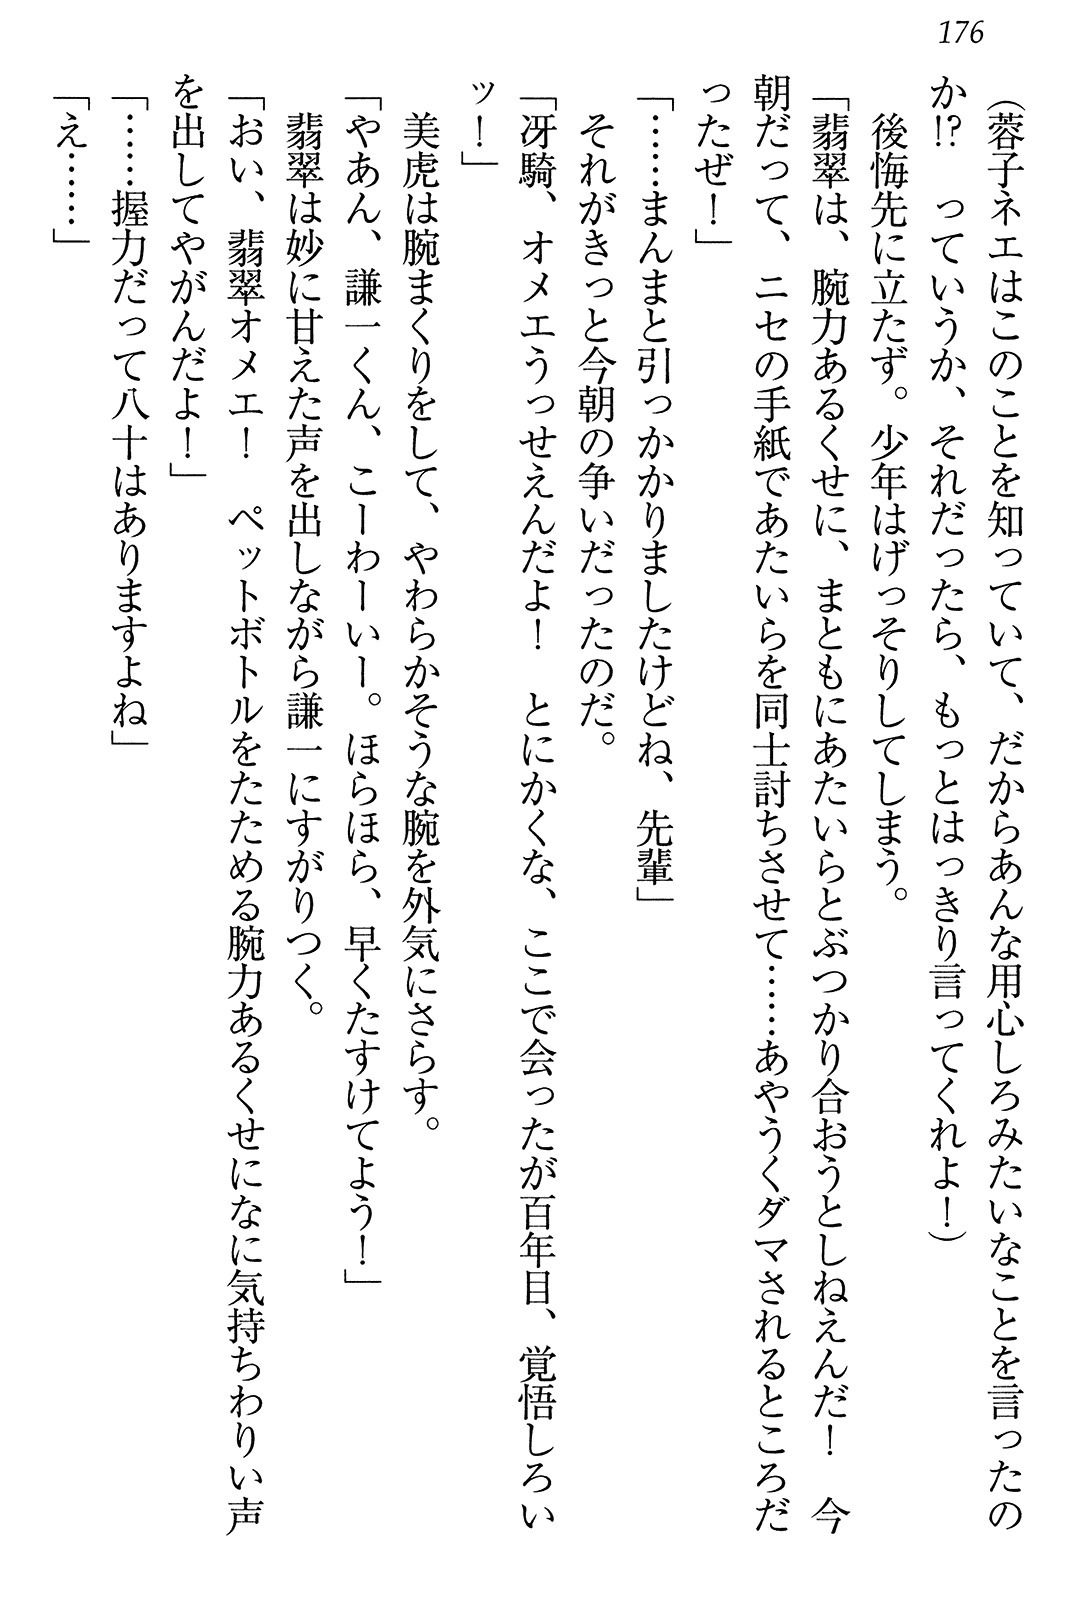 176
（蓉子ネエはこのことを知っていて、だからあんな用心しろみたいなことを言ったの
か!?　っていうか、それだったら、もっとはっきり言ってくれよ！）
　後悔先に立たず。少年はげっそりしてしまう。
「翡翠は、腕力あるくせに、まともにあたいらとぶつかり合おうとしねえんだ！　今
朝だって、ニセの手紙であたいらを同士討ちさせて……あやうくダマされるところだ
ったぜ！」
「……まんまと引っかかりましたけどね、先輩」
　それがきっと今朝の争いだったのだ。
「冴騎、オメエうっせえんだよ！　とにかくな、ここで会ったが百年目、覚悟しろい
ッ！」
　美虎は腕まくりをして、やわらかそうな腕を外気にさらす。
「やあん、謙一くん、こーわーいー。ほらほら、早くたすけてよう！」
　翡翠は妙に甘えた声を出しながら謙一にすがりつく。
「おい、翡翠オメエ！　ペットボトルをたためる腕力あるくせになに気持ちわりい声
を出してやがんだよ！」
「……握力だって八十はありますよね」
「え……」